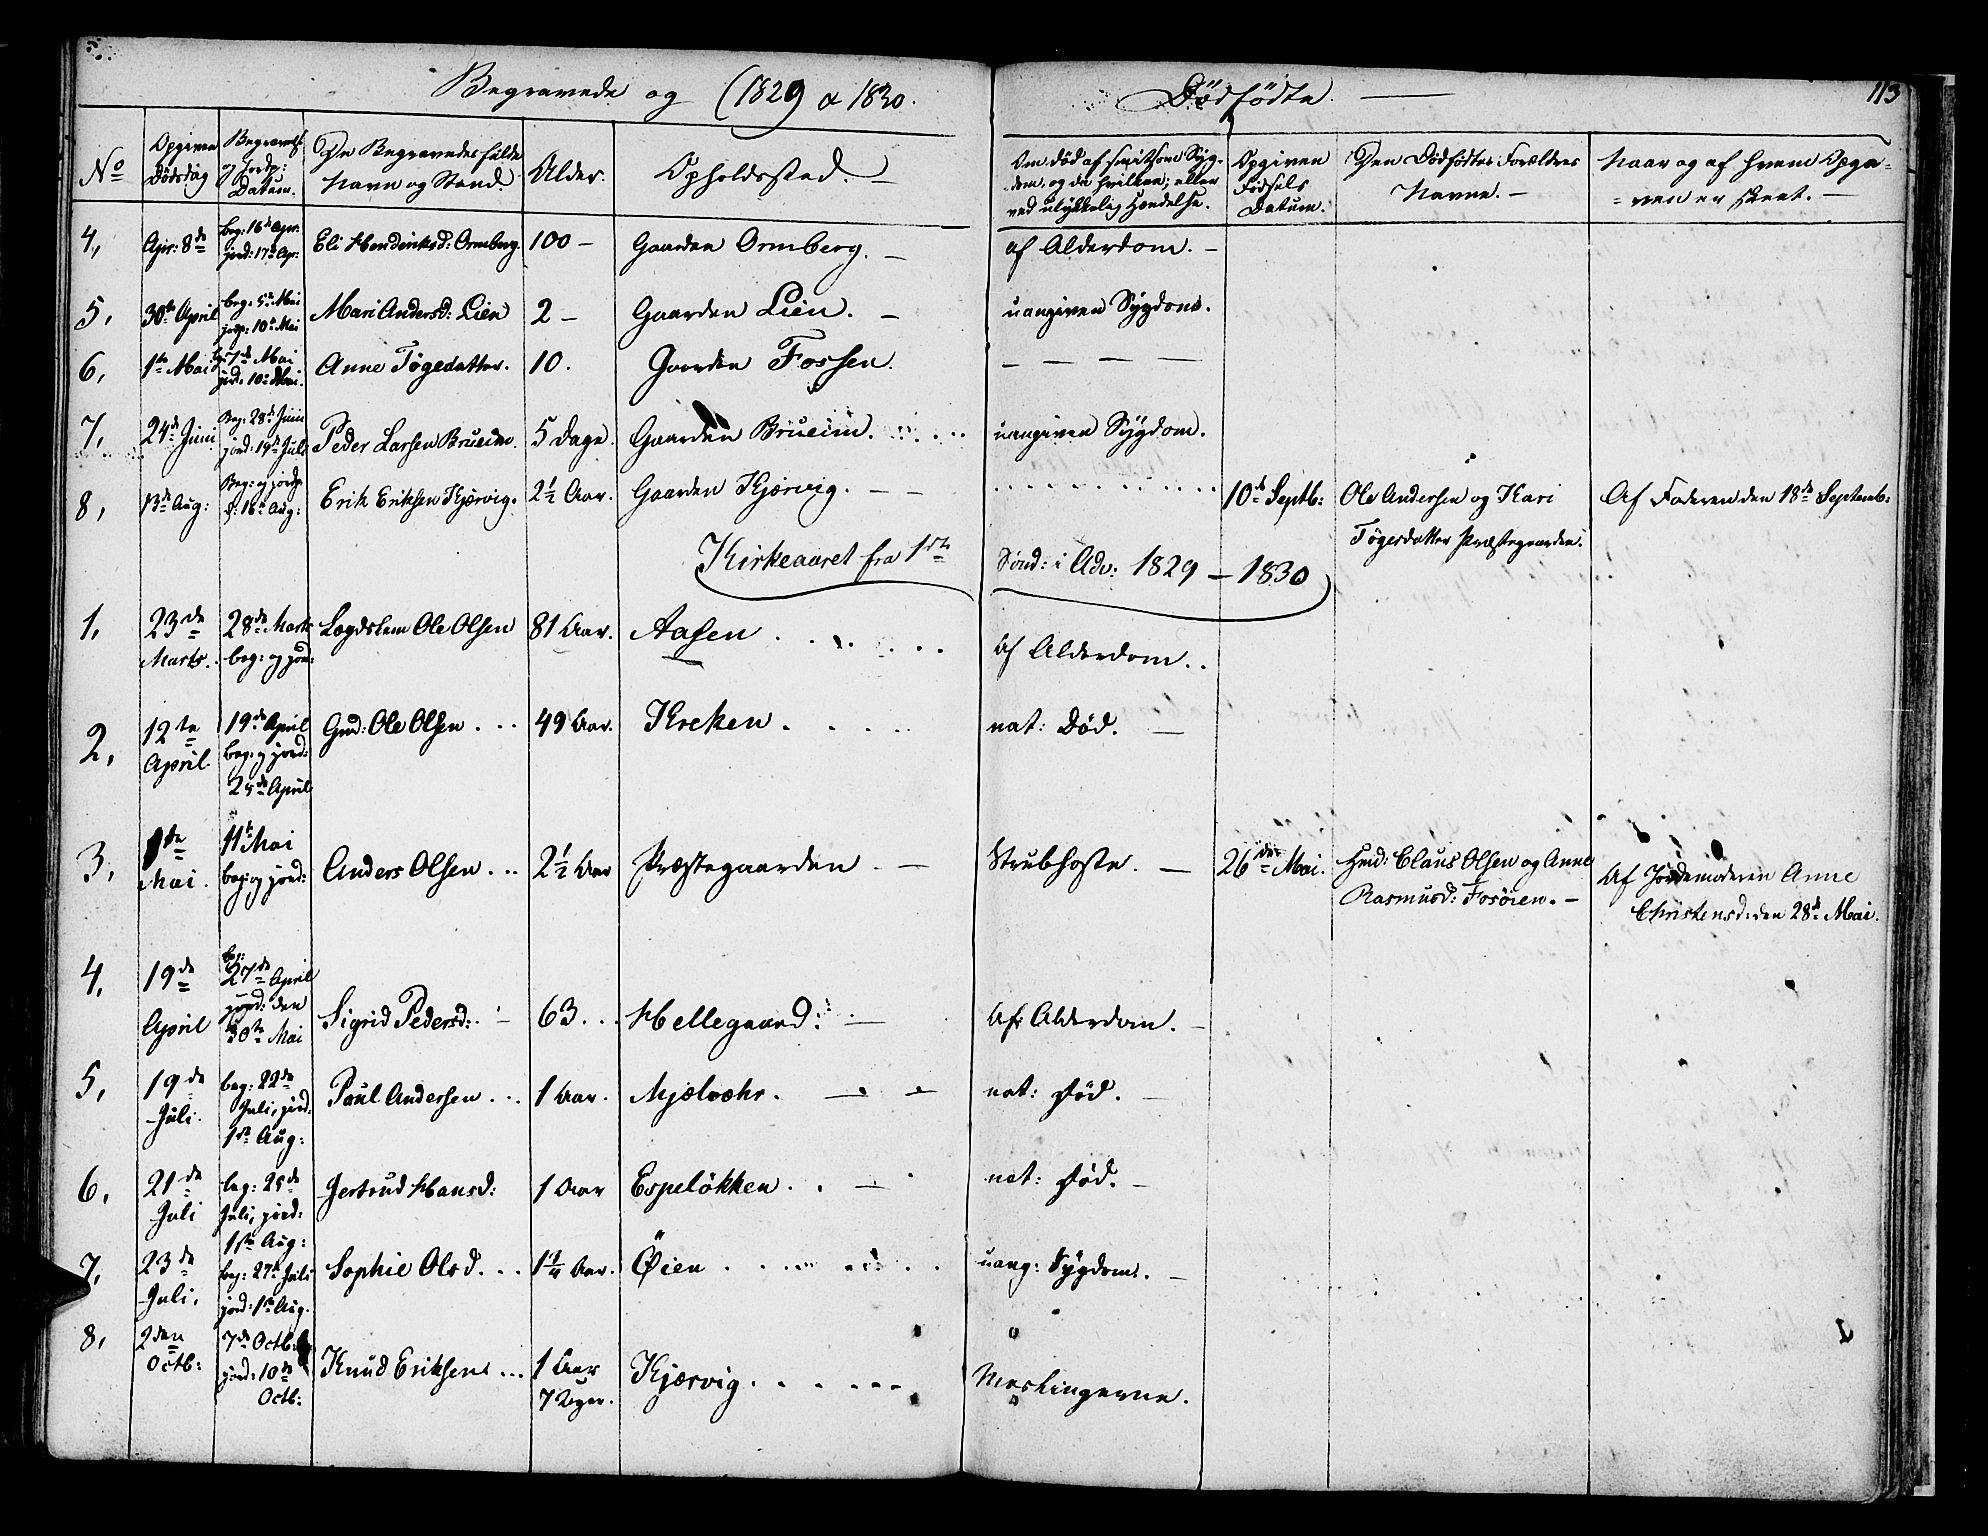 Begravede og (1829 & 1830. Dödfödte.
113
No
Opgiven Dödsdag
Begravels: og Jordp: Datum.
De Begravedes fulde Navn og Stand.
Alder.
Opholdssted.
Om död af smitsom Sygdom, og da hvilken; eller ved ulykkelig Hændelse.
Opgiven Födsels Datum.
Den Dödfödtes Forældres Navne.
Naar og af hvem Opgaven er skeet.
4, Apr: 8de beg: 16de Apr. jord: 17de Apr. Eli Hendriksd: Ormberg. 100 Gaarden Ormberg. af Alderdom.
5, 30te April beg: 5te Mai jordp: 10de Mai Mari Andersd: Lien 2 Gaarden Lien. uangiven Sygdom.
6, 1te Mai beg: 7de Mai jord: 10de Mai. Anne Tøgedatter. 10. Gaarden Fossen. — — — —
7, 24de Juni Beg: 28de Juni jord: 19de Juli Peder Larsen Brueim. 5 Dage. Gaarden Brueim. uangiven Sygdom.
8, 13de Aug: Beg: og jordp. d: 16de Aug: Erik Eriksen Kjørvig. 2½ Aar. Gaarden Kjørvig. 10de Septb: Ole Andersen og Kari Tøgesdatter Præstegaarden. Af Faderen den 18de Septemb:
Kirkeaaret fra 1ste Sönd: i Adv: 1829 — 1830
1, 23de Marts. 28de Marts beg: og jord: Lægdslem Ole Olsen 81 Aar. Aasen. Af Alderdom.
2, 12te April. 19de April beg: og jord: 25de April Gmd: Ole Olsen 49 Aar. Kreken. nat: Död.
3, Mai. 11te Mai beg: og jord: Anders Olsen 2½ Aar Præstegaarden. Strubhoste. 26de Mai. Hmd: Claus Olsen og Anne Rasmusd: Fosöien. Af Jordemoderen Anne Christensd: den 28de Mai.
4, 19de April beg: 27de April jord: den 30te Mai Sigrid Pedersd: 63 Hellegaard: Af Alderdom.
5, 19de Juli. beg: 22de Juli, jord. 1ste Aug: Poul Andersen 1 Aar. Mjelvæhr. nat: Död.
6, 21de Juli beg: 25de Juli, jord: 1ste Aug: Gertrud Hansd: 1 Aar Espelökken. nat: Död.
7, 23de Juli, beg: 27de Juli jord: 1ste Aug. Sophie Olsd. 1¾ Aar. Öien uang: Sygdom.
8, 2den Octb: 7de Octb: jord: 10de Octb: Knud Eriksen 1 Aar 7 Uger. Kjørvig. Meslingerne.